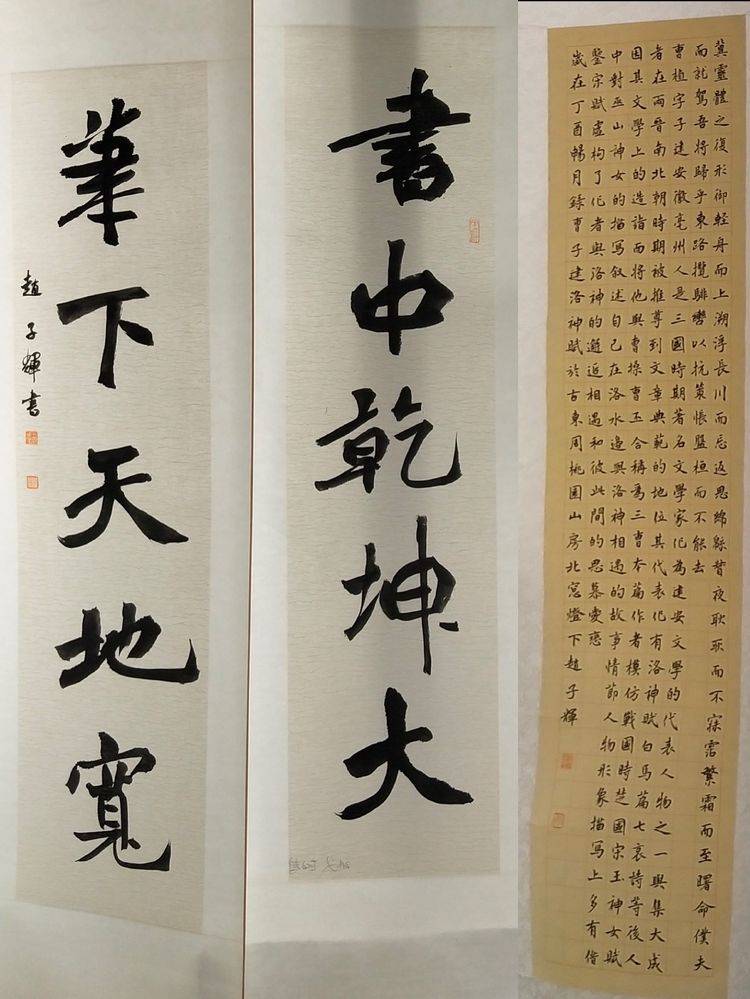 書中乾坤大
筆下天地寬
趙子輝書
冀靈體之復形御輕舟而上溯浮長川而忘返思綿緜督夜耿耿而不寐霑繁霜而至曙命僕夫
而就駕吾將歸乎東路攬騑轡以抗策悵盤桓而不能去
曹植字子建安徽亳州人是三國時期著名文學家作為建安文學的代表人物之一與集大成
者在兩晉南北朝時期被推尊到文章典範的地位其代表作有洛神賦白馬篇七哀詩等後人
因其文學上的造詣而將他與曹操曹丕合稱為三曹本篇作者模仿戰國時楚國宋玉神女賦
中對巫山神女的描寫叙述自己在洛水邊與洛神相遇的故事情節人物形象描写上多有借
鑒宋賦虛构了作者與洛神的邂逅相遇和彼此間的思慕愛戀
歲在丁酉暢月錄曹子建洛神賦於古東周桃園山房北窓燈下趙子輝